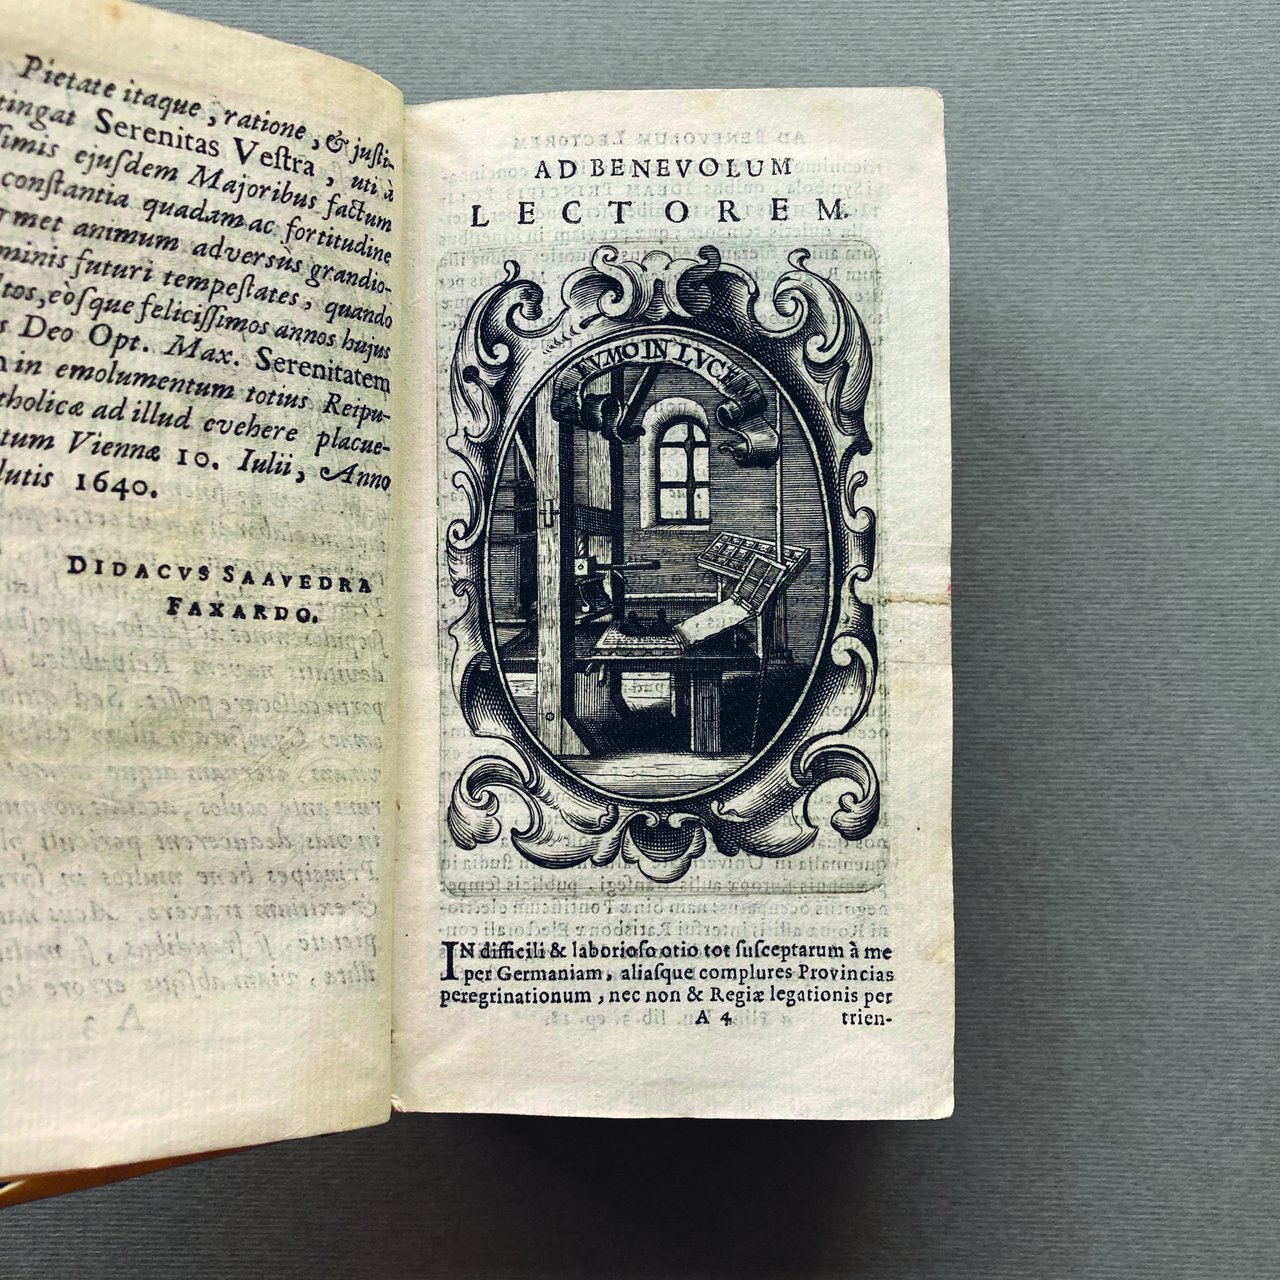 Pietate itaque, ratione, & justi-
tingat Serenitas Vestra, uti à
ſimis ejuſdem Majoribus factum
conſtantia quadam ac fortitudine
rmet animum adversùs grandio-
minis futuri tempeſtates, quando
ltos, eòſque feliciſſimos annos hujus
s Deo Opt. Max. Serenitatem
in emolumentum totius Reipu-
tholicæ ad illud evehere placue-
tum Viennæ 10. Iulii, Anno
lutis 1640.
DIDACVS SAAVEDRA
FAXARDO.
AD BENEVOLUM
LECTOREM.
FVMO IN LVCEM
IN difficili & laborioſo otio tot ſuſceptarum à me
per Germaniam, aliaſque complures Provincias
peregrinationum, nec non & Regiæ legationis per
A 4 trien-